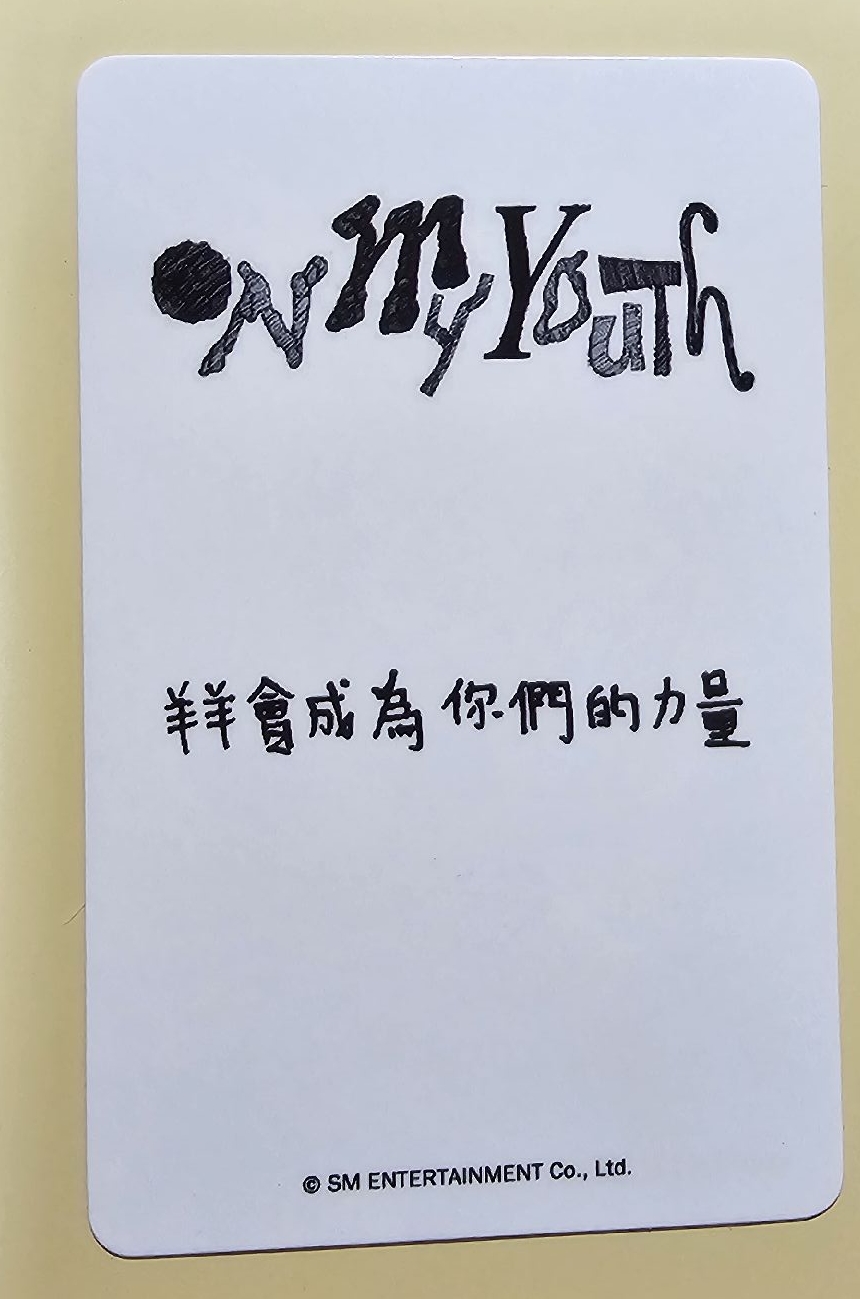 ON MY YOUTH
羊羊會成為你們的力量
© SM ENTERTAINMENT Co., Ltd.